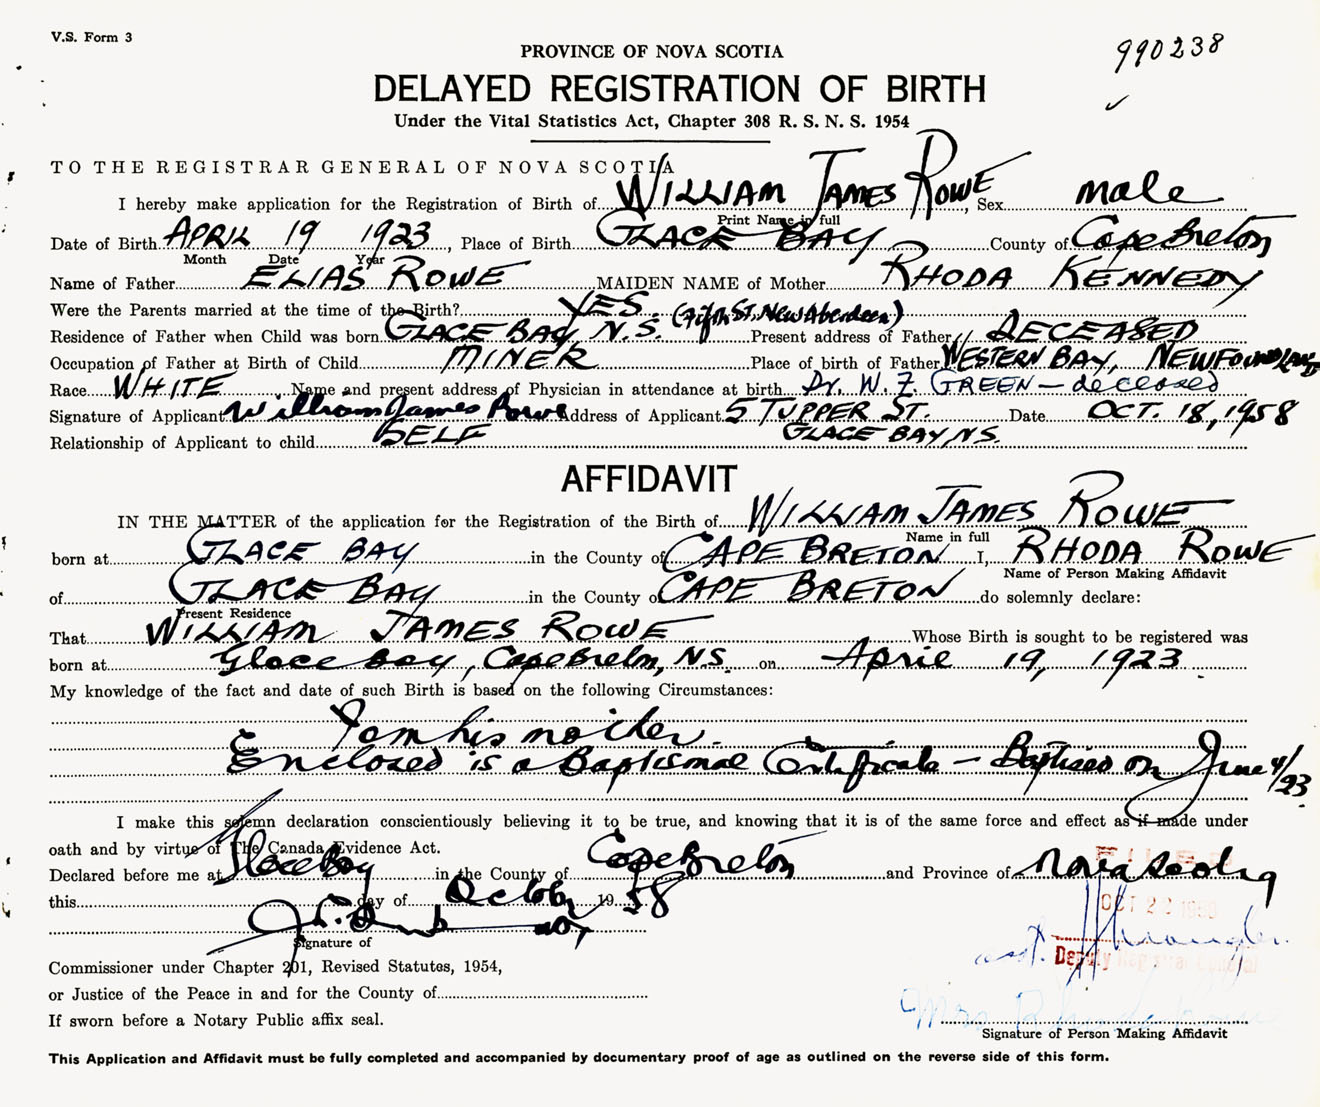 V.S. Form 3
990238
PROVINCE OF NOVA SCOTIA
DELAYED REGISTRATION OF BIRTH
Under the Vital Statistics Act, Chapter 308 R. S. N. S. 1954
TO THE REGISTRAR GENERAL OF NOVA SCOTIA
I hereby make application for the Registration of Birth of WILLIAM JAMES ROWE, Sex male
Print Name in full
Date of Birth APRIL 19 1923, Place of Birth GLACE BAY County of Cape Breton
Month Date Year
Name of Father ELIAS ROWE MAIDEN NAME of Mother RHODA KENNEDY
Were the Parents married at the time of the Birth? YES
Residence of Father when Child was born GLACE BAY, N.S. (Fifth St. New Aberdeen) Present address of Father DECEASED
Occupation of Father at Birth of Child MINER Place of birth of Father WESTERN BAY, NEWFOUNDLAND
Race WHITE Name and present address of Physician in attendance at birth Dr. W. F. GREEN — deceased
Signature of Applicant William James Rowe Address of Applicant 5 TUPPER ST. Date OCT. 18, 1958
Relationship of Applicant to child SELF GLACE BAY, N.S.
AFFIDAVIT
IN THE MATTER of the application for the Registration of the Birth of WILLIAM JAMES ROWE
Name in full
born at GLACE BAY in the County of CAPE BRETON I, RHODA ROWE
Name of Person Making Affidavit
of GLACE BAY in the County of CAPE BRETON do solemnly declare:
Present Residence
That WILLIAM JAMES ROWE Whose Birth is sought to be registered was
born at Glace Bay, Cape Breton, N.S. on April 19, 1923
My knowledge of the fact and date of such Birth is based on the following Circumstances:
I am his mother.
Enclosed is a Baptismal Certificate — Baptised on June 4/23
I make this solemn declaration conscientiously believing it to be true, and knowing that it is of the same force and effect as if made under
oath and by virtue of The Canada Evidence Act.
Declared before me at Glace Bay in the County of Cape Breton and Province of Nova Scotia
FILED
this day of October 1958
OCT 22 1958
Signature of
asst.
Deputy Registrar General
Commissioner under Chapter 201, Revised Statutes, 1954,
or Justice of the Peace in and for the County of
If sworn before a Notary Public affix seal.
Mrs Rhoda Rowe
Signature of Person Making Affidavit
This Application and Affidavit must be fully completed and accompanied by documentary proof of age as outlined on the reverse side of this form.